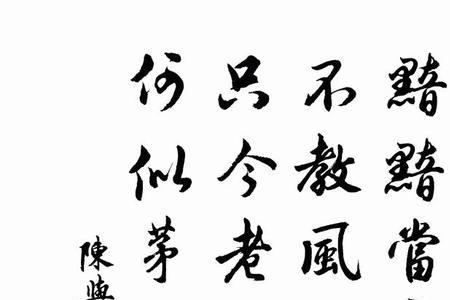 黯黯當
不教風
只今老
何似茅
陳與